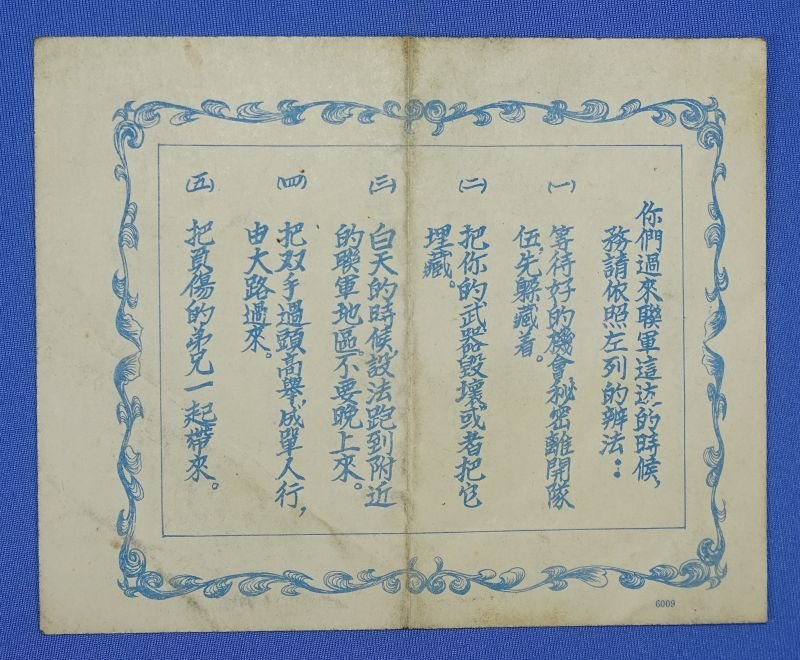 你們過來聯軍這边的時候,
務請依照左列的辦法:
(一) 等待好的機會秘密離開隊
伍,先躲藏着。
(二) 把你的武器毀壞,或者把它
埋藏。
(三) 白天的時候,設法跑到附近
的聯軍地區。不要晚上來。
(四) 把双手過頭高舉,成單人行,
由大路過來。
(五) 把負傷的弟兄一起帶來。
6009